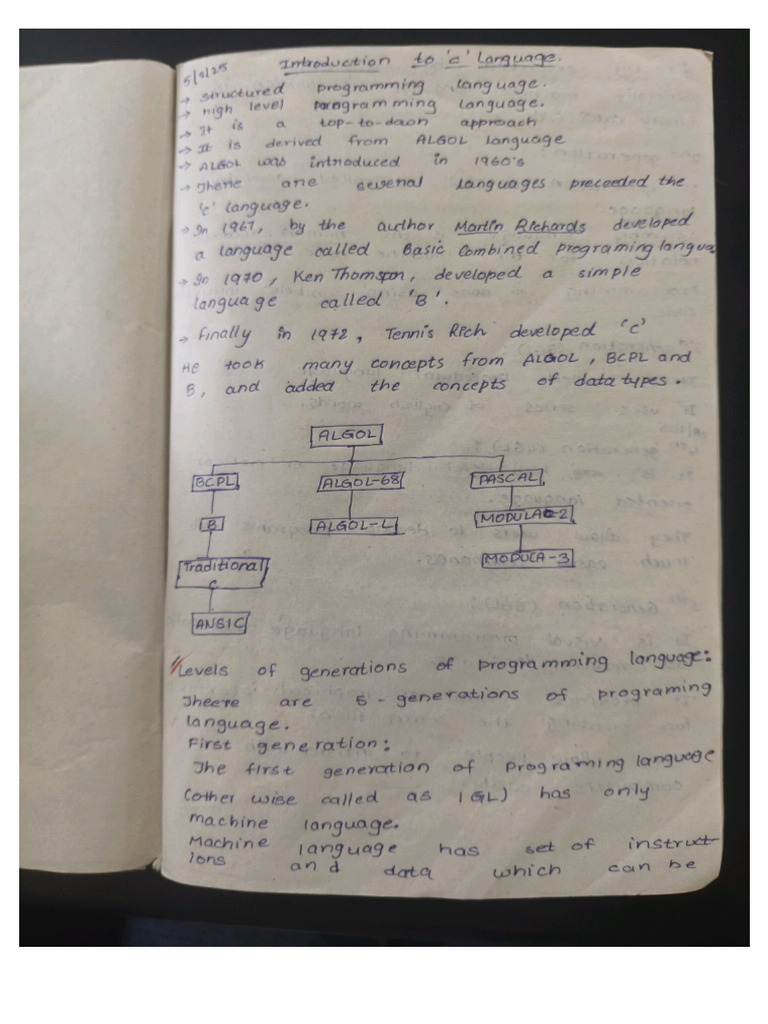 5/9/25
Introduction to 'c' language.
→ structured programming language.
→ High level programming language.
→ It is a top-to-down approach
→ It is derived from ALGOL language
→ ALGOL was introduced in 1960's
→ There are several languages preceeded the
'c' language.
→ In 1967, by the author Martin Richards developed
a language called Basic Combined programing langua
→ In 1970, Ken Thomson, developed a simple
language called 'B'.
→ Finally in 1972, Tennis Rich developed 'c'
He took many concepts from ALGOL, BCPL and
B, and added the concepts of data types.
ALGOL
BCPL ALGOL-68 PASCAL
B ALGOL-L MODULA-2
Traditional MODULA-3
C
ANSIC
Levels of generations of programming language:
Jheere are 5-generations of programing
language.
First generation:
The first generation of programing language
(other wise called as 1GL) has only
machine language.
Machine language has set of instruct-
ions and data which can be